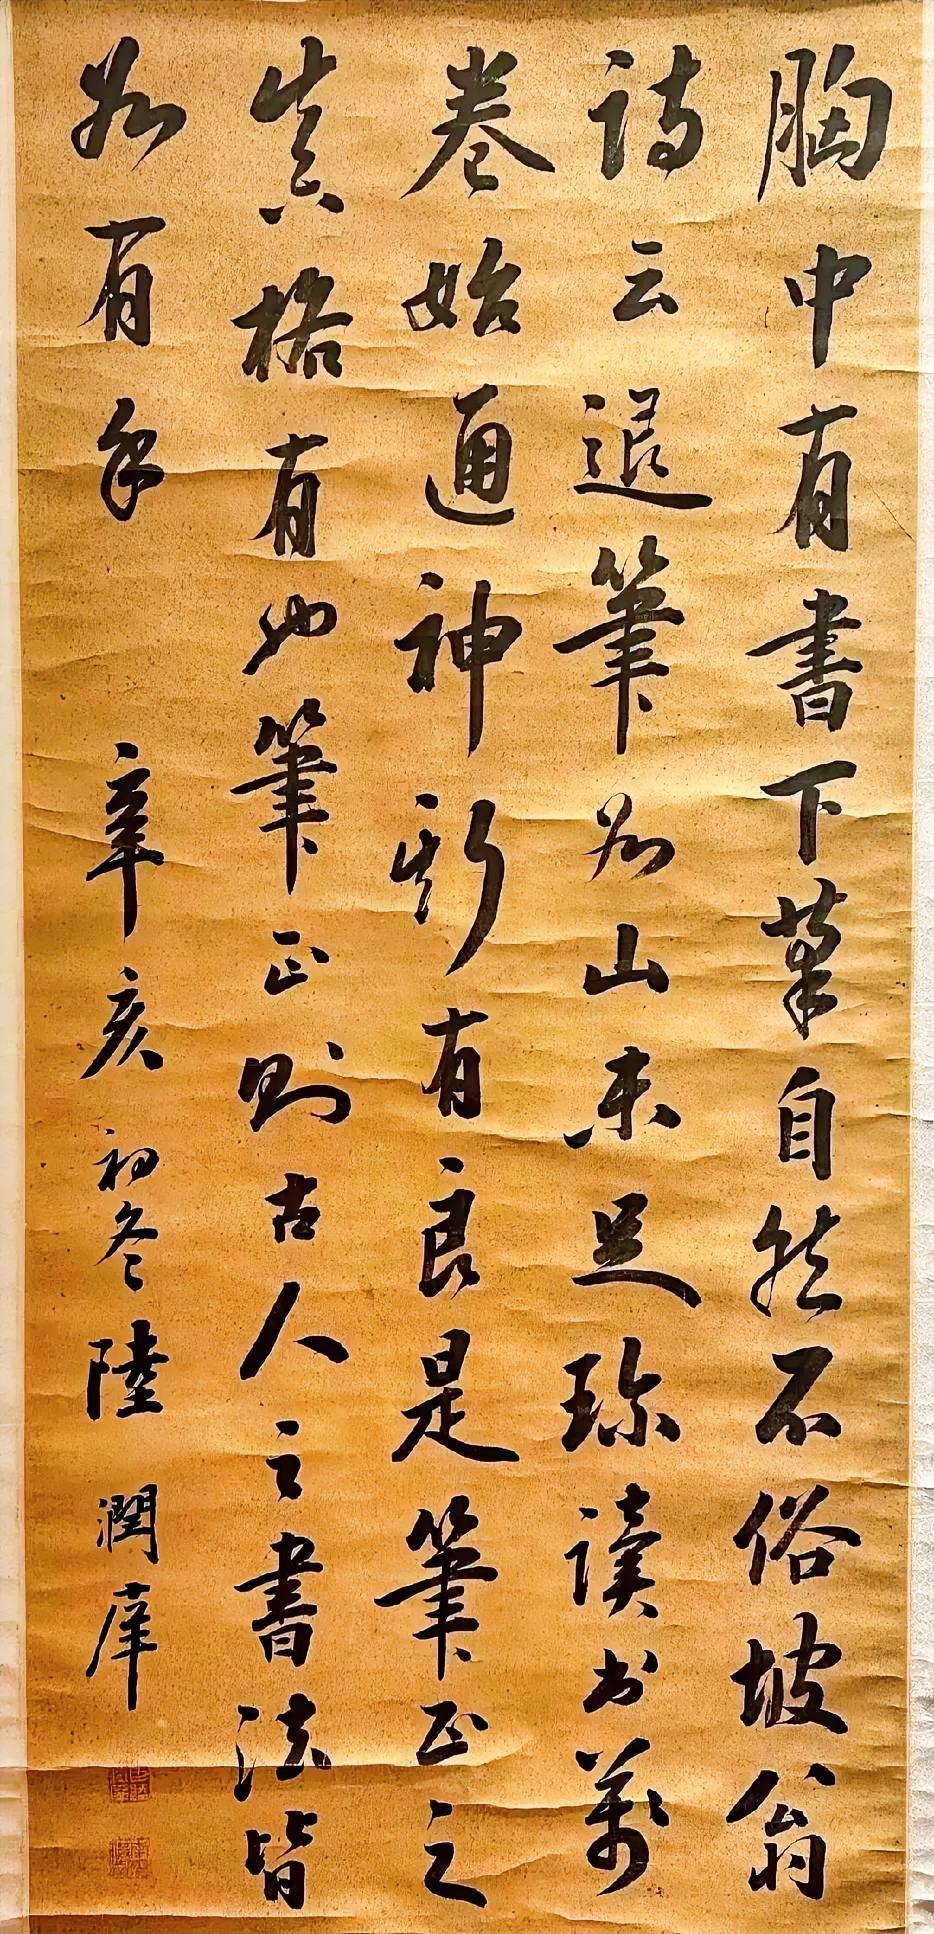 胸中有書下筆自然不俗坡翁
詩云退筆如山未足珍讀書萬
卷始通神斯有良是筆正之
真格有也筆正則古人之書法皆
如有 辛亥初冬陸潤庠